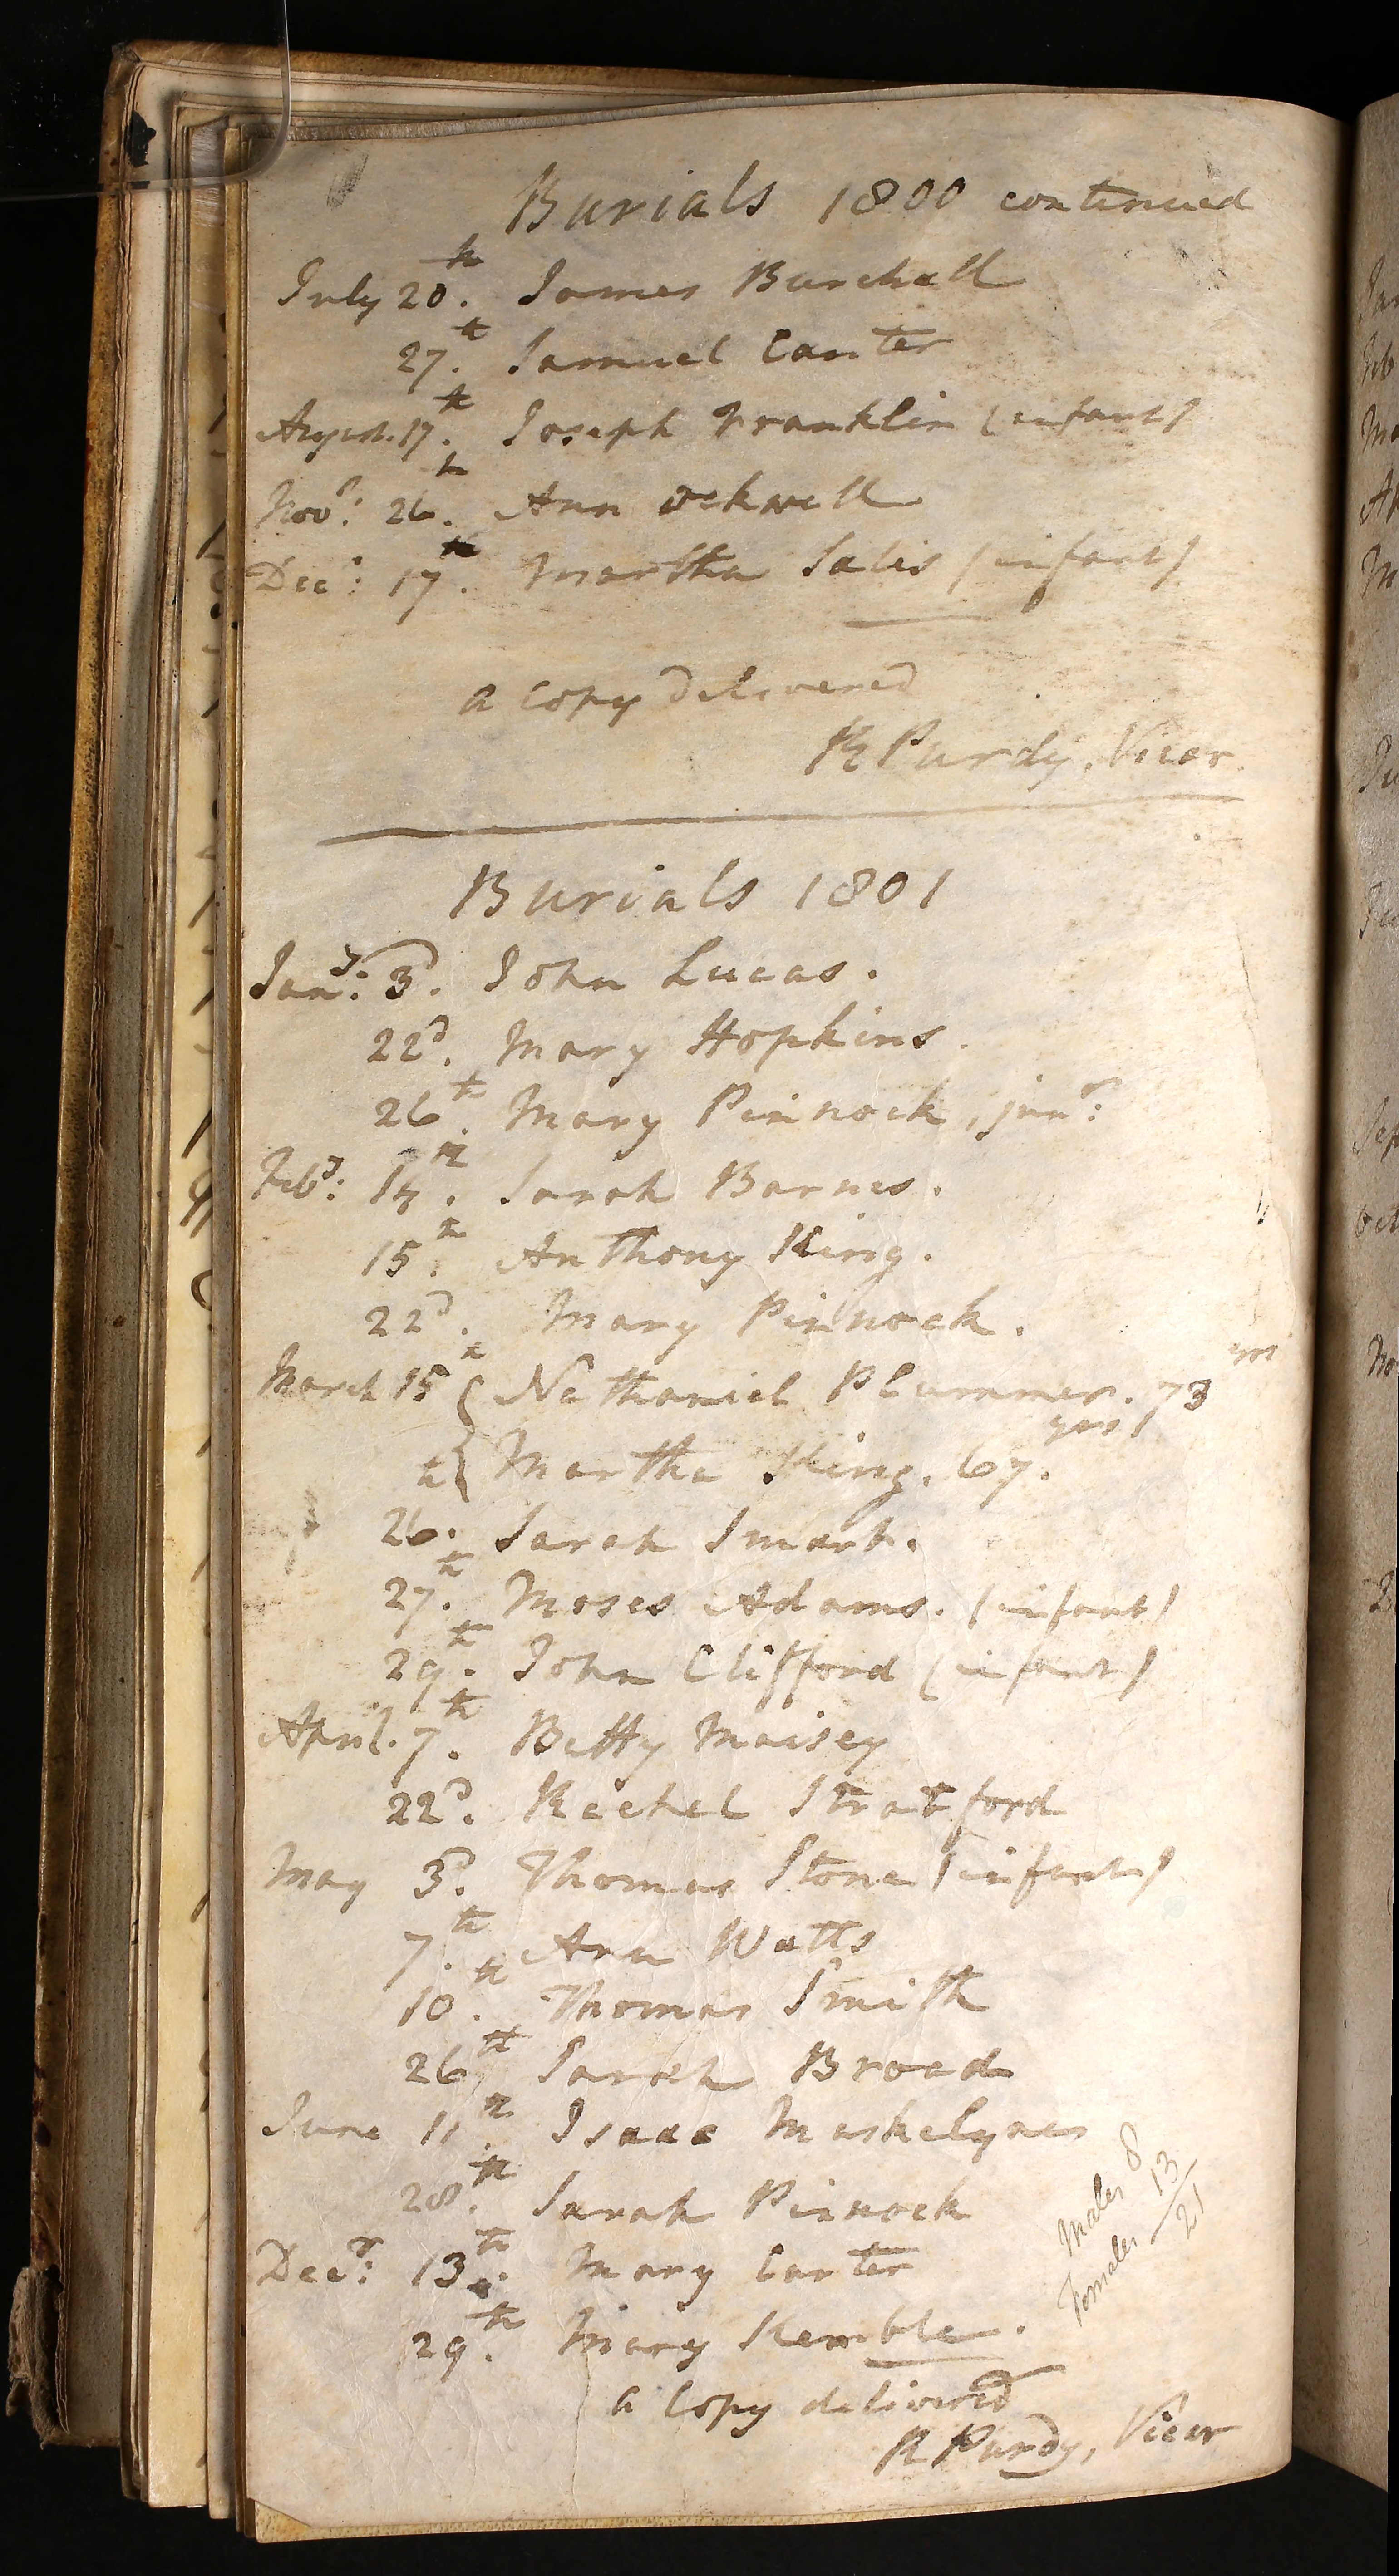 Burials 1800 continued
July 20th. James Burchall
27th. Samuel Carter
August. 17th. Joseph Franklin (infant)
Novr: 26th. Ann Ockwell
Decr: 17th. Martha Salis (infant)
a Copy delivered
R Purdy, Vicar.
Burials 1801
Jany: 3d. John Lucas.
22d. Mary Hopkins.
26th. Mary Pinnock, junr:
Feby: 14th. Sarah Barnes.
15th. Anthony King.
22d. Mary Pinnock.
March 15th { Nathaniel Plummer. 73 yrs
{ Martha King. 67 yrs.
26th. Sarah Smart.
27th. Moses Adams. (infant)
29th. John Clifford (infant)
April. 7th. Betty Maisey
22d. Rachel Stratford
May 3d. Thomas Stone (infant)
7th. Ann Watts
10th. Thomas Smith
26th Sarah Broad
June 11th Isaac Maskelynes
28th. Sarah Pinnock
Decr: 13th. Mary Carter
29th. Mary Kemble.
Males 8
Females 13
21
a Copy delivered
R Purdy, Vicar